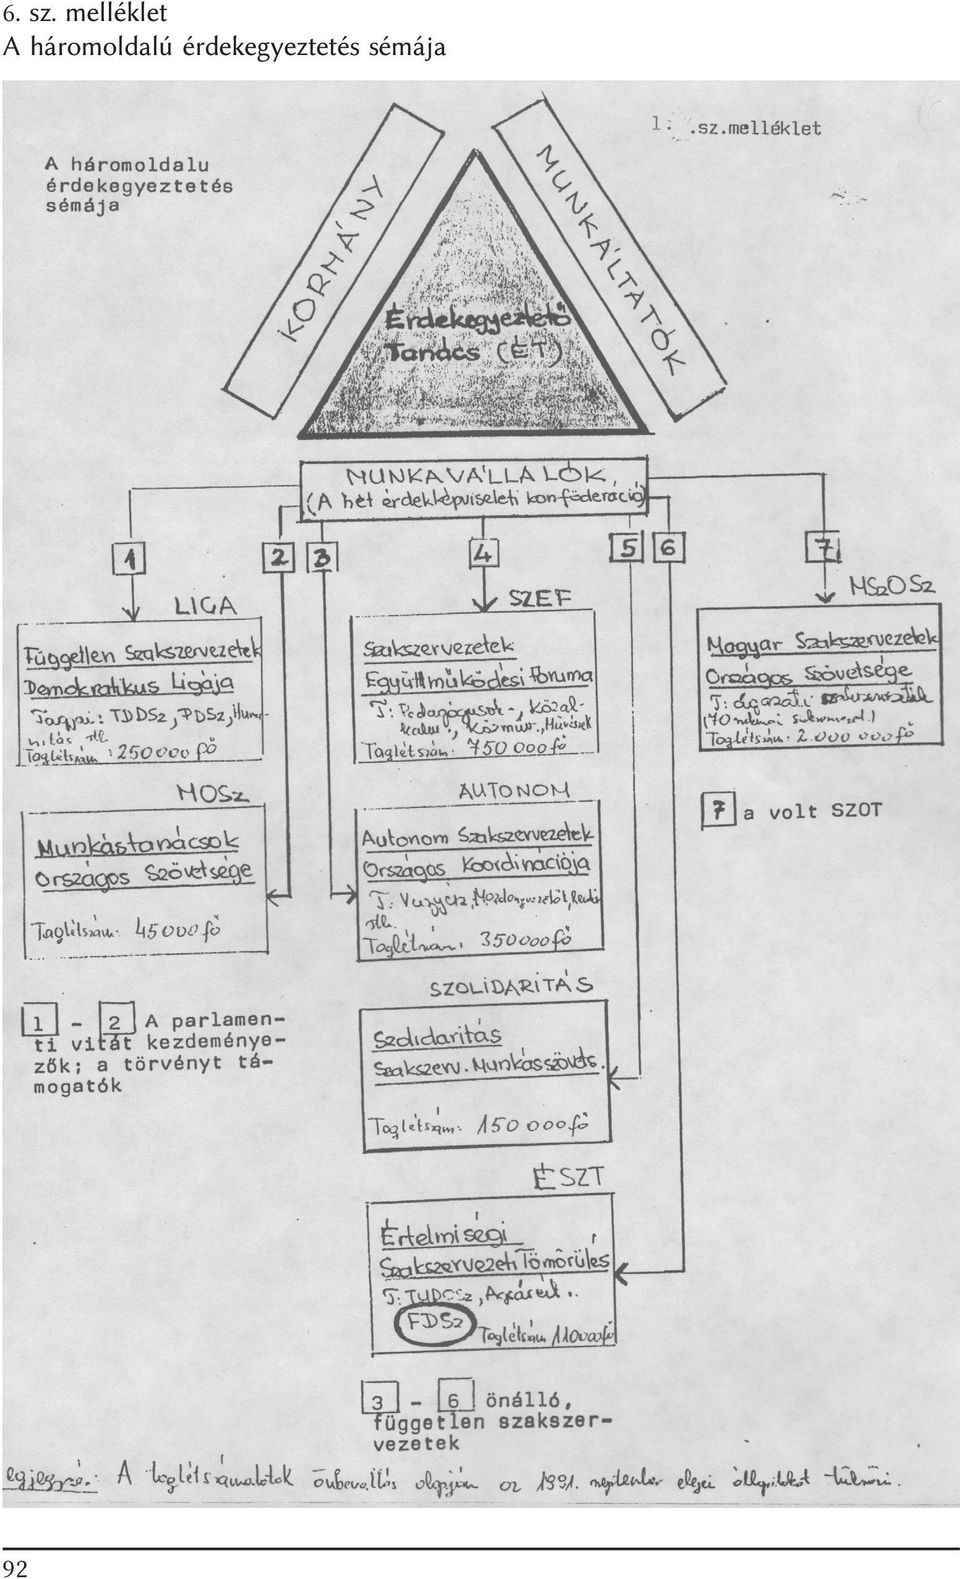 6. sz. melléklet
A háromoldalú érdekegyeztetés sémája
1. .sz.melléklet
A háromoldalu
érdekegyeztetés
sémája
KORMÁNY
MUNKÁLTATÓK
Érdekegyeztető
Tanács (ÉT)
MUNKAVÁLLALÓK,
(A hét érdekképviseleti konföderáció)
1
2
3
4
5
6
7
LIGA
Független Szakszervezetek
Demokratikus Ligája
Tagjai: TDDSz, PDSz, Huma-
nitás stb.
Taglétszám: 250000 fő
MOSz
Munkástanácsok
Országos Szövetsége
Taglétszám: 45000 fő
1 - 2 A parlamen-
ti vitát kezdeménye-
zők; a törvényt tá-
mogatók
SZEF
Szakszervezetek
Együttműködési Fóruma
T: Pedagógusok-, Közal-
kalm., Közműv., Művészek
Taglétszám: 750 000 fő
AUTONOM
Autonom Szakszervezetek
Országos Koordinációja
T: Vegyész, Mozdonyvezetők,
stb.
Taglétszám: 350000 fő
SZOLIDARITÁS
Szolidaritás
Szakszerv. Munkásszöv.
Taglétszám: 150 000 fő
ÉSZT
Értelmiségi
Szakszervezeti Tömörülés
T: TUDOSz, Agrárért.
FDSz
Taglétszám 110000 fő
3 - 6 önálló,
független szakszer-
vezetek
MSzOSz
Magyar Szakszervezetek
Országos Szövetsége
T: ágazati szakszervezetek
(70
Taglétszám: 2.000 000 fő
7 a volt SZOT
Megjegyzés: A taglétszámadatok önbevallás alapján az 1991. szeptember elejei állapotokat tükrözi.
92